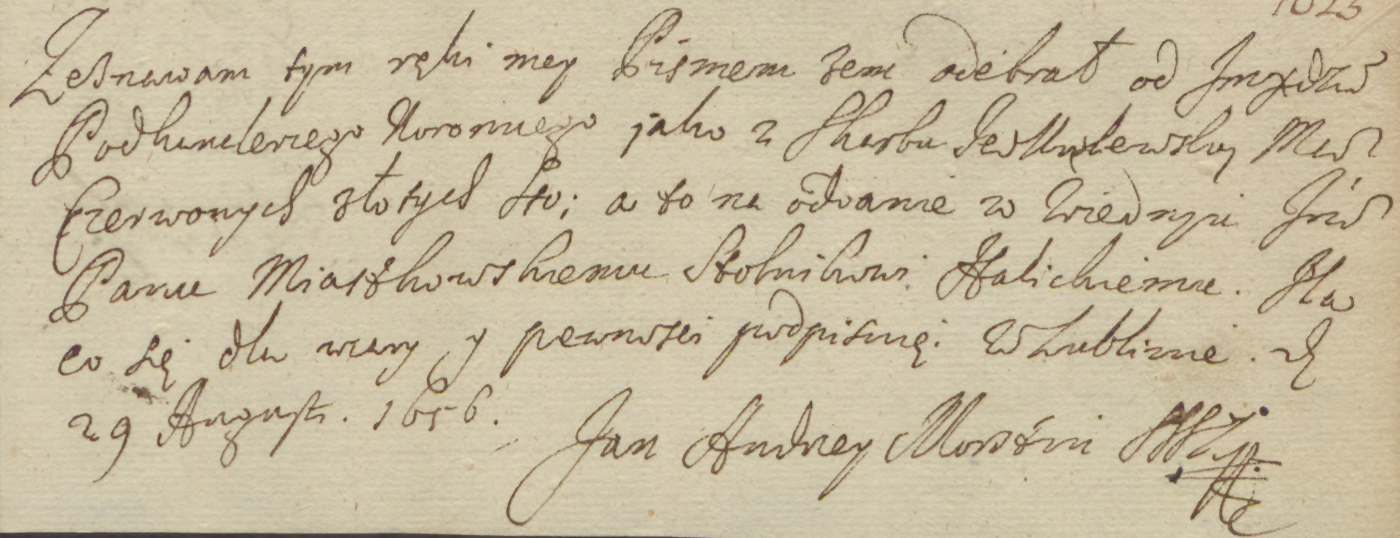 Zeznawam tym ręki mey Pismem zem odebrał od
Podkanclerzego Koronnego jako z Skarbu
Czerwonych złotych sto; a to na oddanie w Wiedniu
Panu Miastkowskiemu Stolnikowi Halickiemu. Na
co się dla wiary y pewnosci podpisuię. W Lublinie. D
29 Augusti. 1656.
Jan Andrzey Morstin